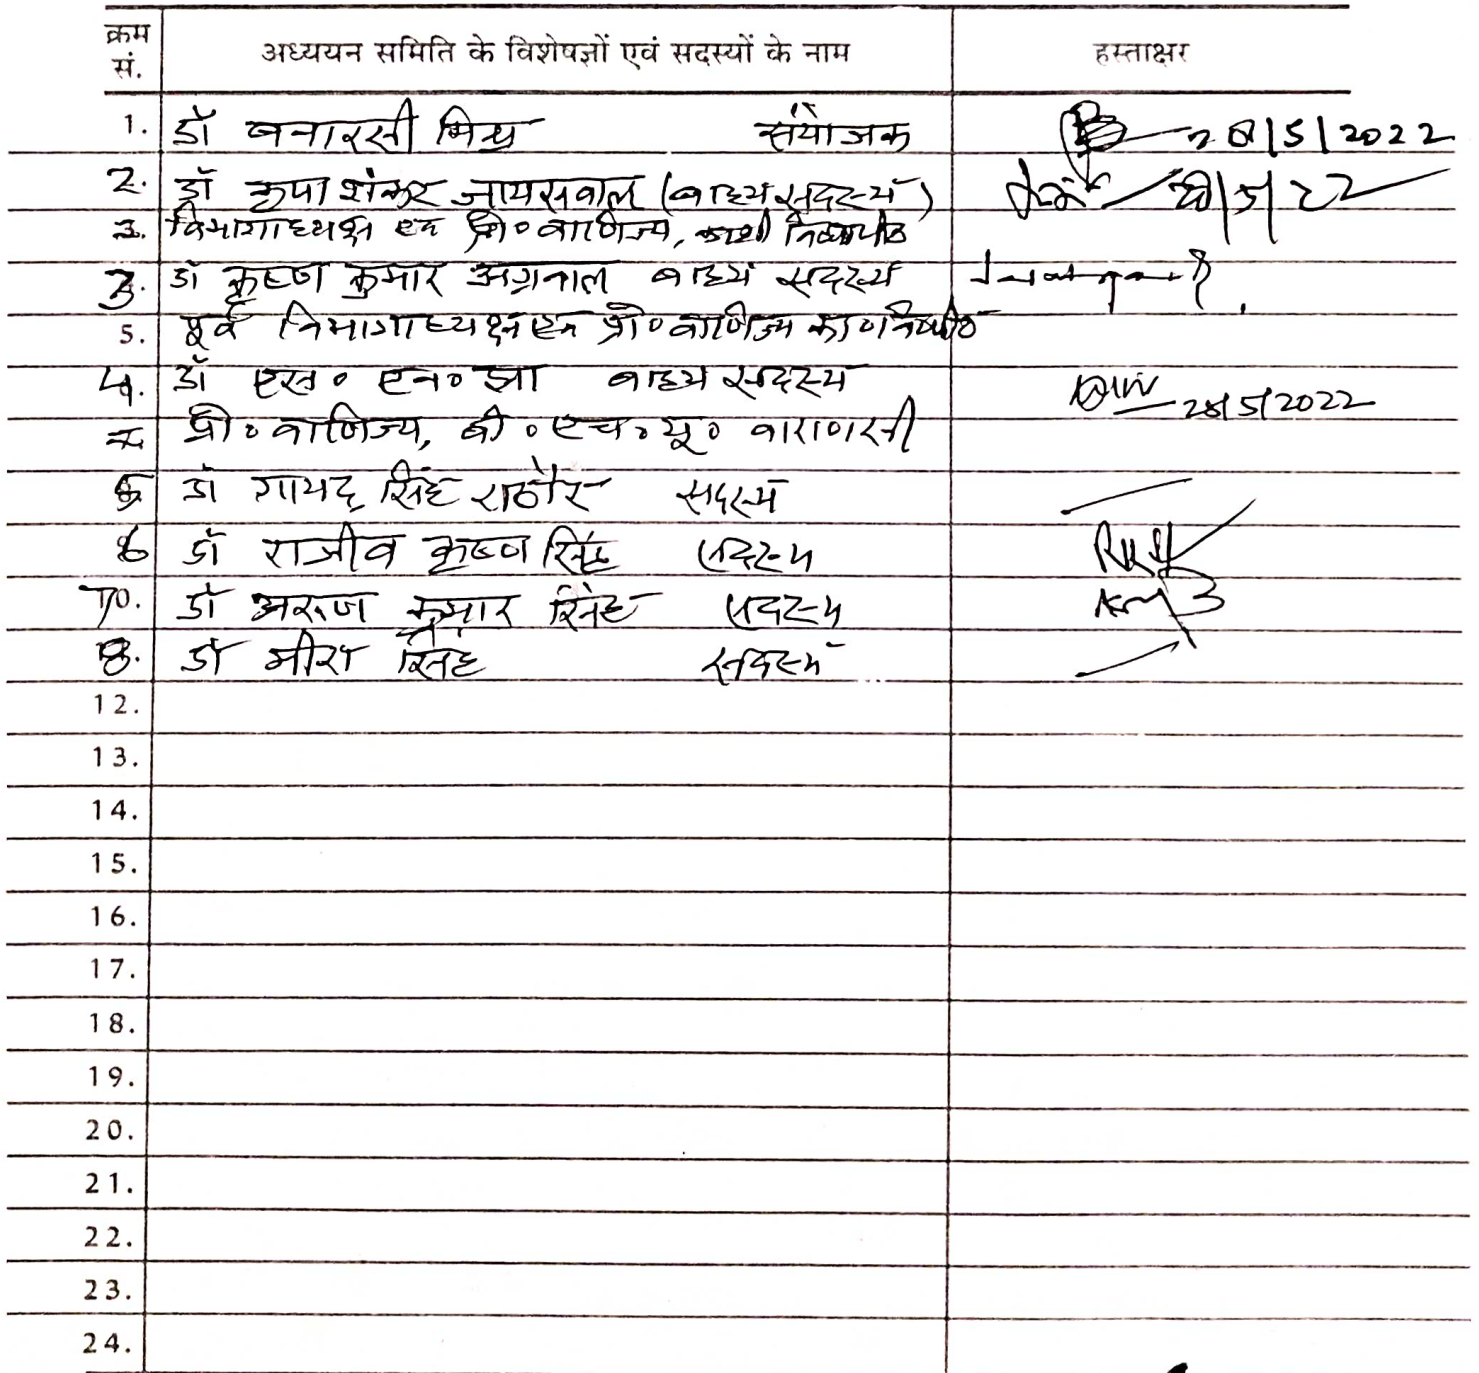 क्रम सं. अध्ययन समिति के विशेषज्ञों एवं सदस्यों के नाम हस्ताक्षर
1. डॉ बनारसी मिश्र संयोजक 28/5/2022
2. डॉ कृपा शंकर जायसवाल (बाह्य सदस्य) 28/5/22
विभागाध्यक्ष एवं प्रो० वाणिज्य, काशी विद्यापीठ
3. डॉ कृष्ण कुमार अग्रवाल बाह्य सदस्य
5. पूर्व विभागाध्यक्ष एवं प्रो० वाणिज्य का० विद्यापीठ
4. डॉ एस० एन० झा बाह्य सदस्य 28/5/2022
प्रो० वाणिज्य, बी० एच० यू० वाराणसी
5 डॉ सिंह राठौर सदस्य
6 डॉ राजीव कृष्ण सिंह सदस्य
7. डॉ अरुण कुमार सिंह सदस्य
8. डॉ मीरा सिंह सदस्य
12.
13.
14.
15.
16.
17.
18.
19.
20.
21.
22.
23.
24.